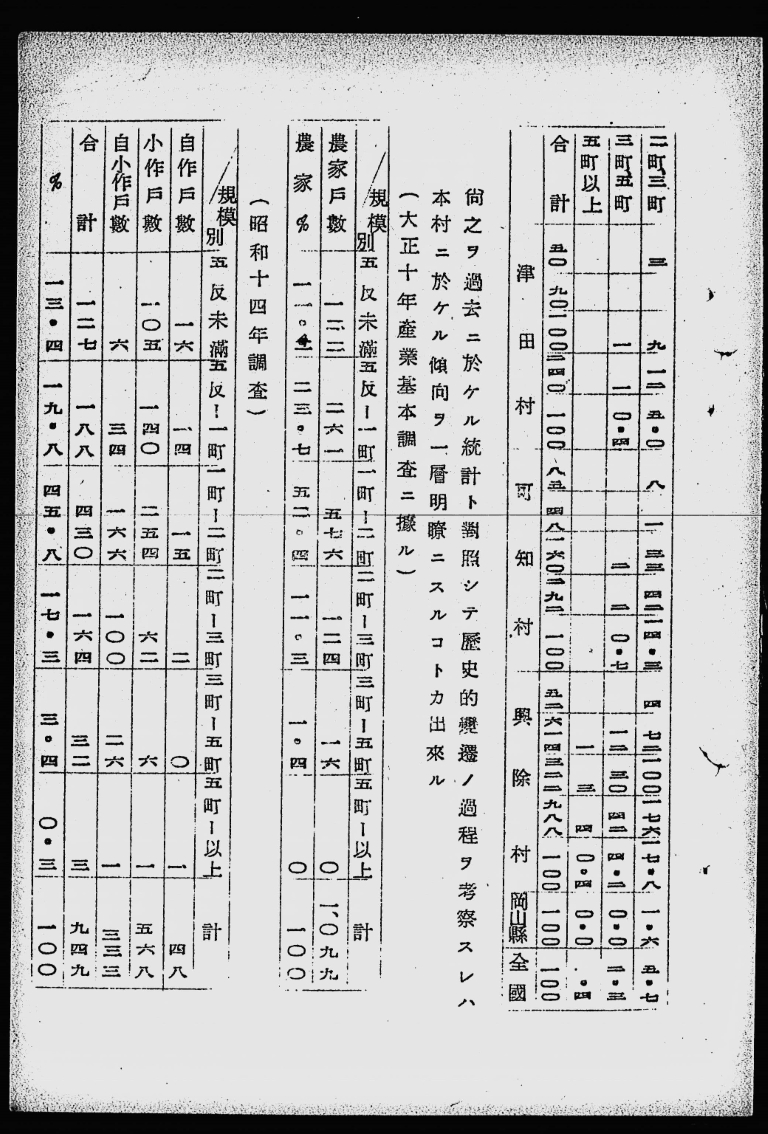 二町三町 三 九 一二 五・〇 八 一 三三 四二 一四・三 四 七二 一〇〇 一七六 一七・八 一・六 五・七
三町五町 一 一 〇・四 二 二 〇・七 一二 三〇 四二 四・二 〇・〇 二・三
五町以上 一 三 四 〇・四 〇・〇 ・四
合計 五〇 九〇 一〇〇 二四〇 一〇〇 八五 四八 一六〇 二九三 一〇〇 五二 六一四 三二二 九八八 一〇〇 一〇〇 一〇〇
津田村 可知村 興除村 岡山縣 全國
尙之ヲ過去ニ於ケル統計ト對照シテ歷史的變遷ノ過程ヲ考察スレハ
本村ニ於ケル傾向ヲ一層明瞭ニスルコトカ出來ル
(大正十年產業基本調査ニ據ル)
規模別 五反未滿 五反ー一町 一町ー二町 二町ー三町 三町ー五町 五町ー以上 計
農家戶數 一二、二 二六一 五七六 一二四 一六 〇 一、〇九九
農家% 一一・ 二三・七 五二・四 一一・三 一・四 〇 一〇〇
(昭和十四年調査)
規模別 五反未滿 五反ー一町 一町ー二町 二町ー三町 三町ー五町 五町ー以上 計
自作戶數 一六 一四 一五 二 〇 一 四八
小作戶數 一〇五 一四〇 二五四 六二 六 一 五六八
自小作戶數 六 三四 一六六 一〇〇 二六 一 三三三
合計 一二七 一八八 四三〇 一六四 三二 三 九四九
% 一三・四 一九・八 四五・八 一七・三 三・四 〇・三 一〇〇